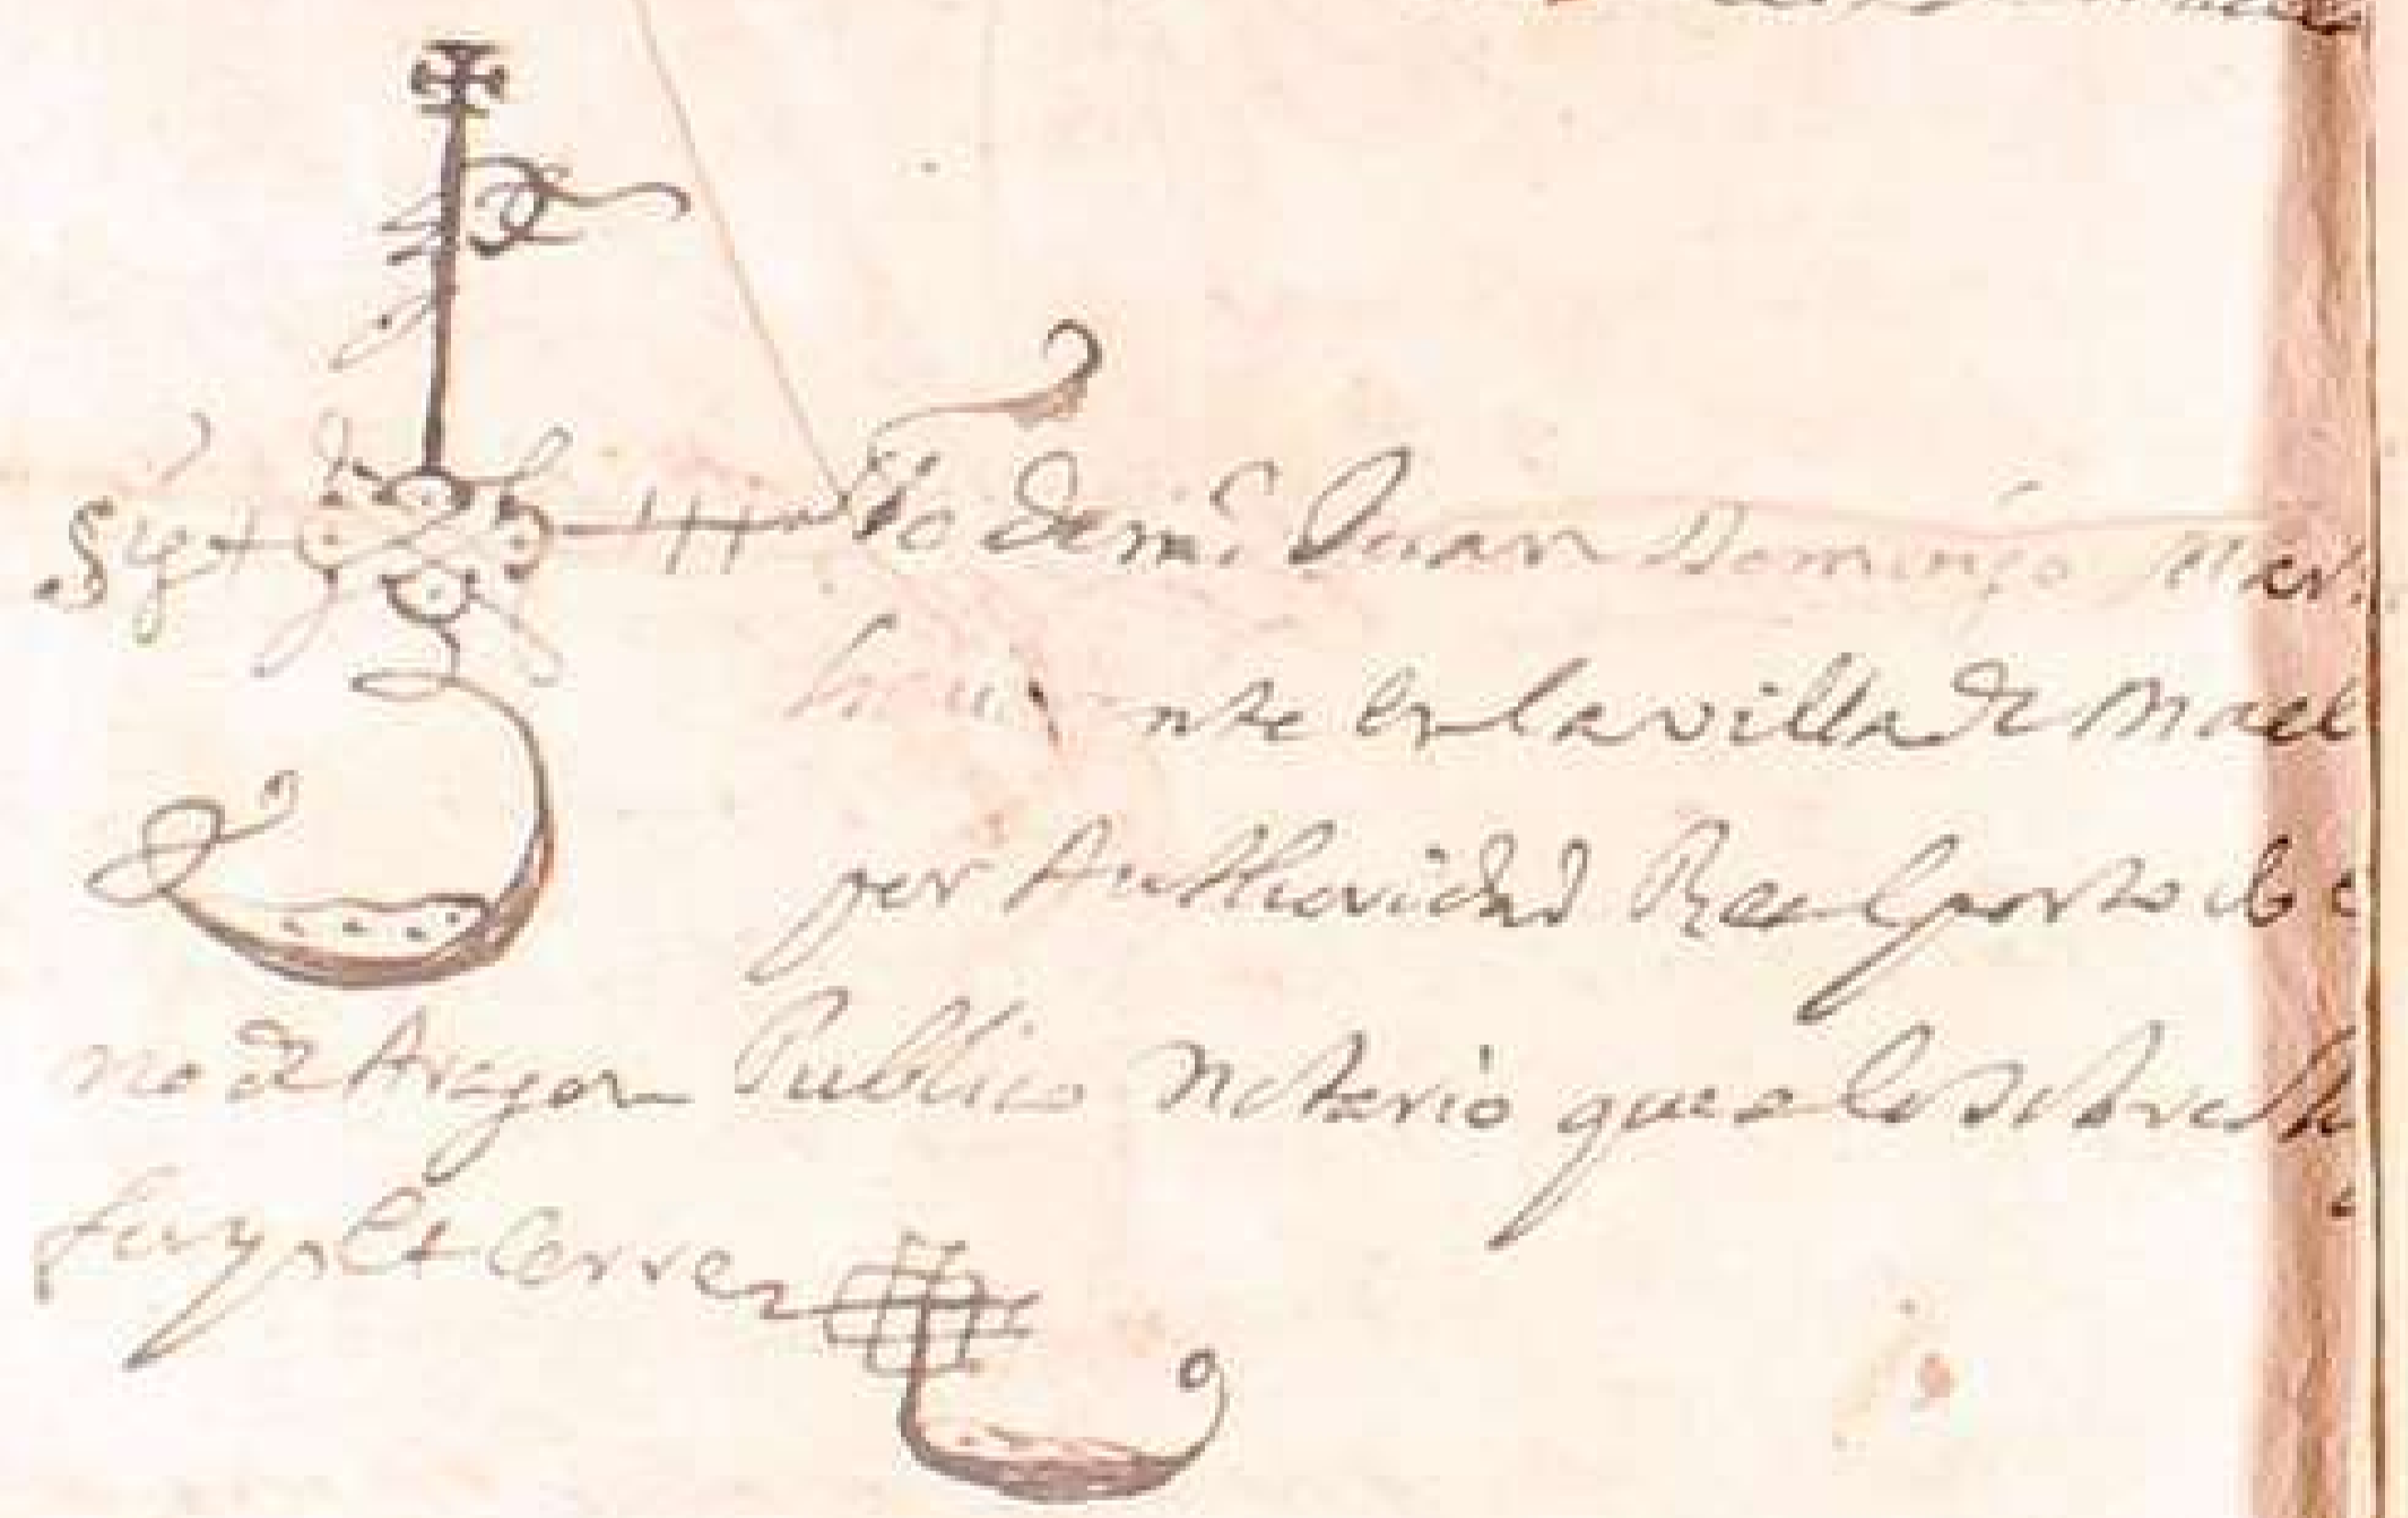 Sig
de mi Juan Domingo Mar
nte en la villa de Mael
por Authoridad Real por todo e
no de Aragon Publico Notario que a lo sobred
fuy et cerre